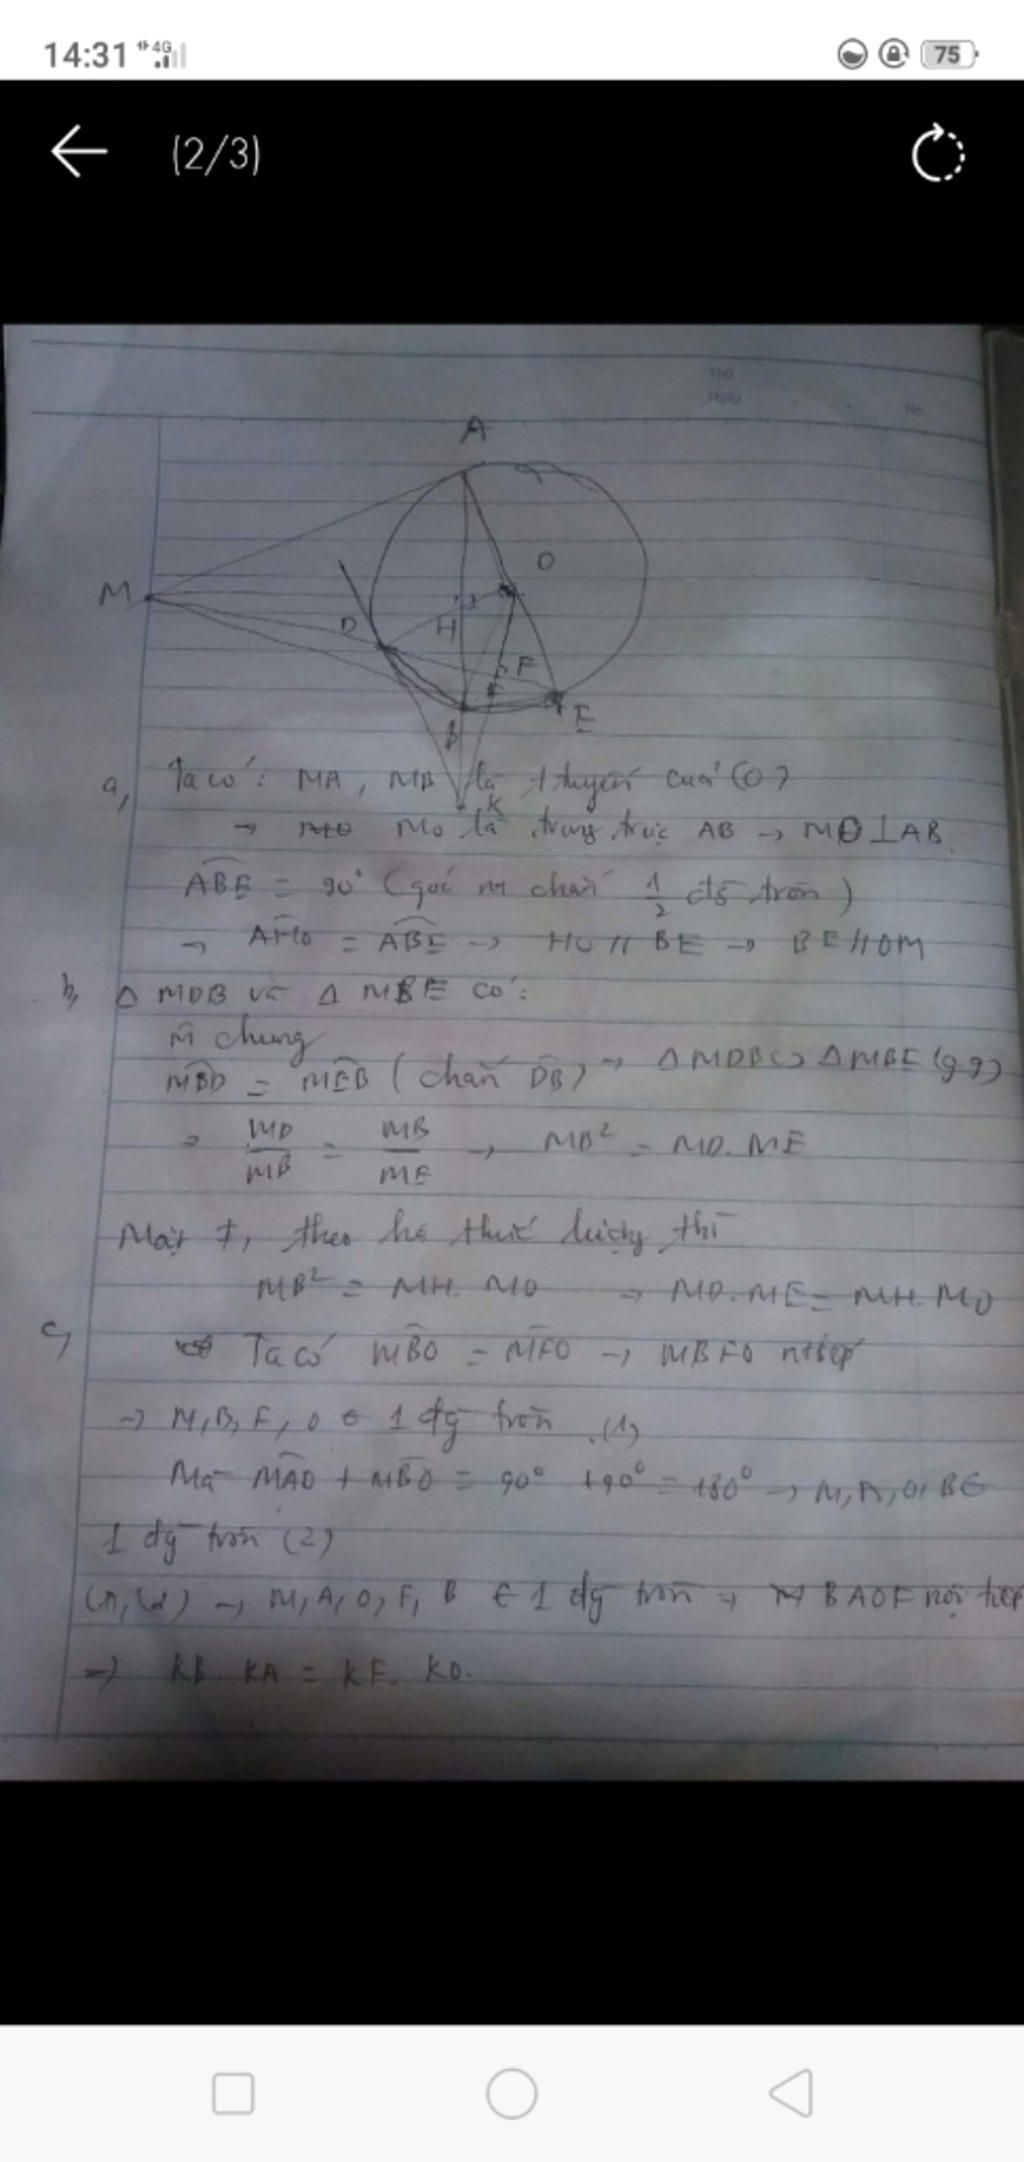 14:31 4G 75
(2/3)
Thứ
Ngày No.
A
O
M
D
H
F
E
B
K
a, Ta có: MA, MB là tuyến của (O)
→ MO là trung trực AB → MO ⊥ AB.
ABE = 90° (góc nt chắn 1/2 đg tròn)
→ AHO = ABE → HO // BE → BE // OM
b, Δ MDB và Δ MBE có:
M chung
MBD = MEB (chắn DB) → Δ MDB ∽ Δ MBE (g.g)
MD/MB = MB/ME → MB² = MD. ME
Mặt ≠, theo hệ thức lượng thì
MB² = MH. MO → MD. ME = MH. MO
c, Ta có MBO = MFO → MBFO ntiếp
→ M, B, F, O ∈ 1 đg tròn (1)
Mà MAO + MBO = 90° + 90° = 180° → M, A, O, B ∈
1 đg tròn (2)
(1), (2) → M, A, O, F, B ∈ 1 đg tròn → BAOF nội tiếp
=> KB. KA = KF. KO.